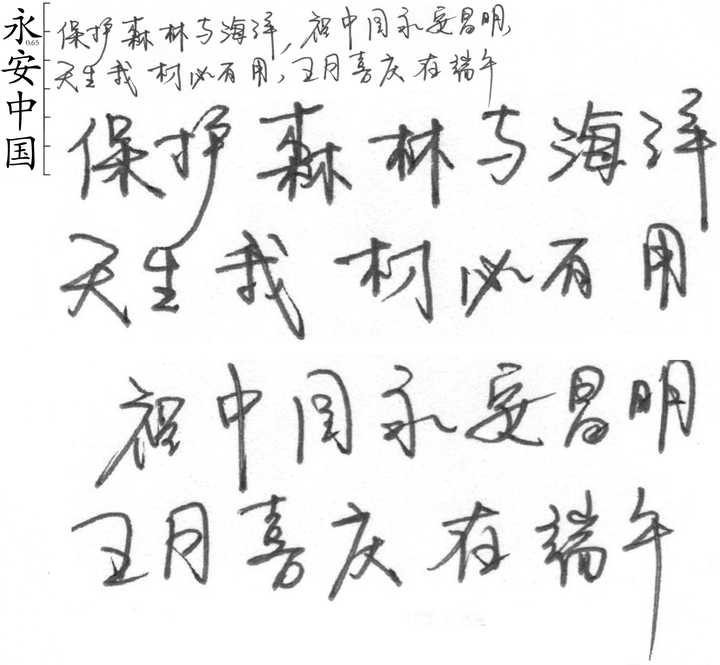 永安中国
0.65
保护森林与海洋,祝中国永安昌明,
天生我材必有用,五月喜庆在端午
保护森林与海洋
天生我材必有用
祝中国永安昌明
五月喜庆在端午